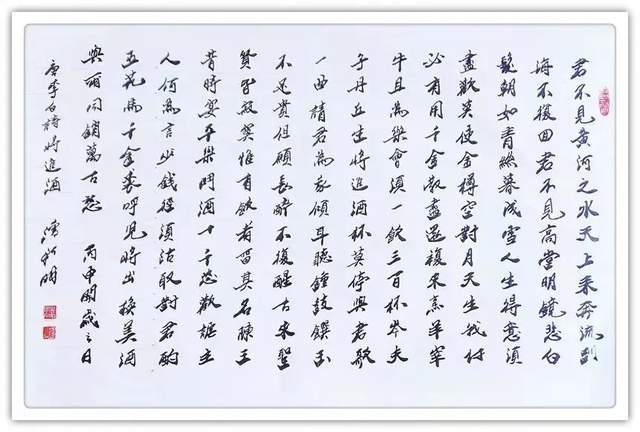 君不見黃河之水天上來奔流到
海不復回君不見高堂明鏡悲白
髮朝如青絲暮成雪人生得意須
盡歡莫使金樽空對月天生我材
必有用千金散盡還復來烹羊宰
牛且為樂會須一飲三百杯岑夫
子丹丘生將進酒杯莫停與君歌
一曲請君為我傾耳聽鐘鼓饌玉
不足貴但願長醉不復醒古來聖
賢皆寂寞惟有飲者留其名陳王
昔時宴平樂鬥酒十千恣歡謔主
人何為言少錢徑須沽取對君酌
五花馬千金裘呼兒將出換美酒
與爾同銷萬古愁 丙申開歲之日
唐李白詩將進酒